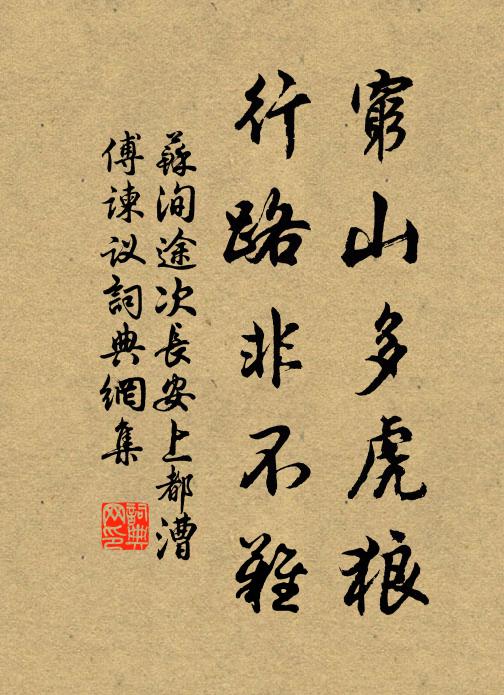 窮山多虎狼
行路非不難
蘇洵途次長安上都漕
傅諫议詞典網集
詞典網印